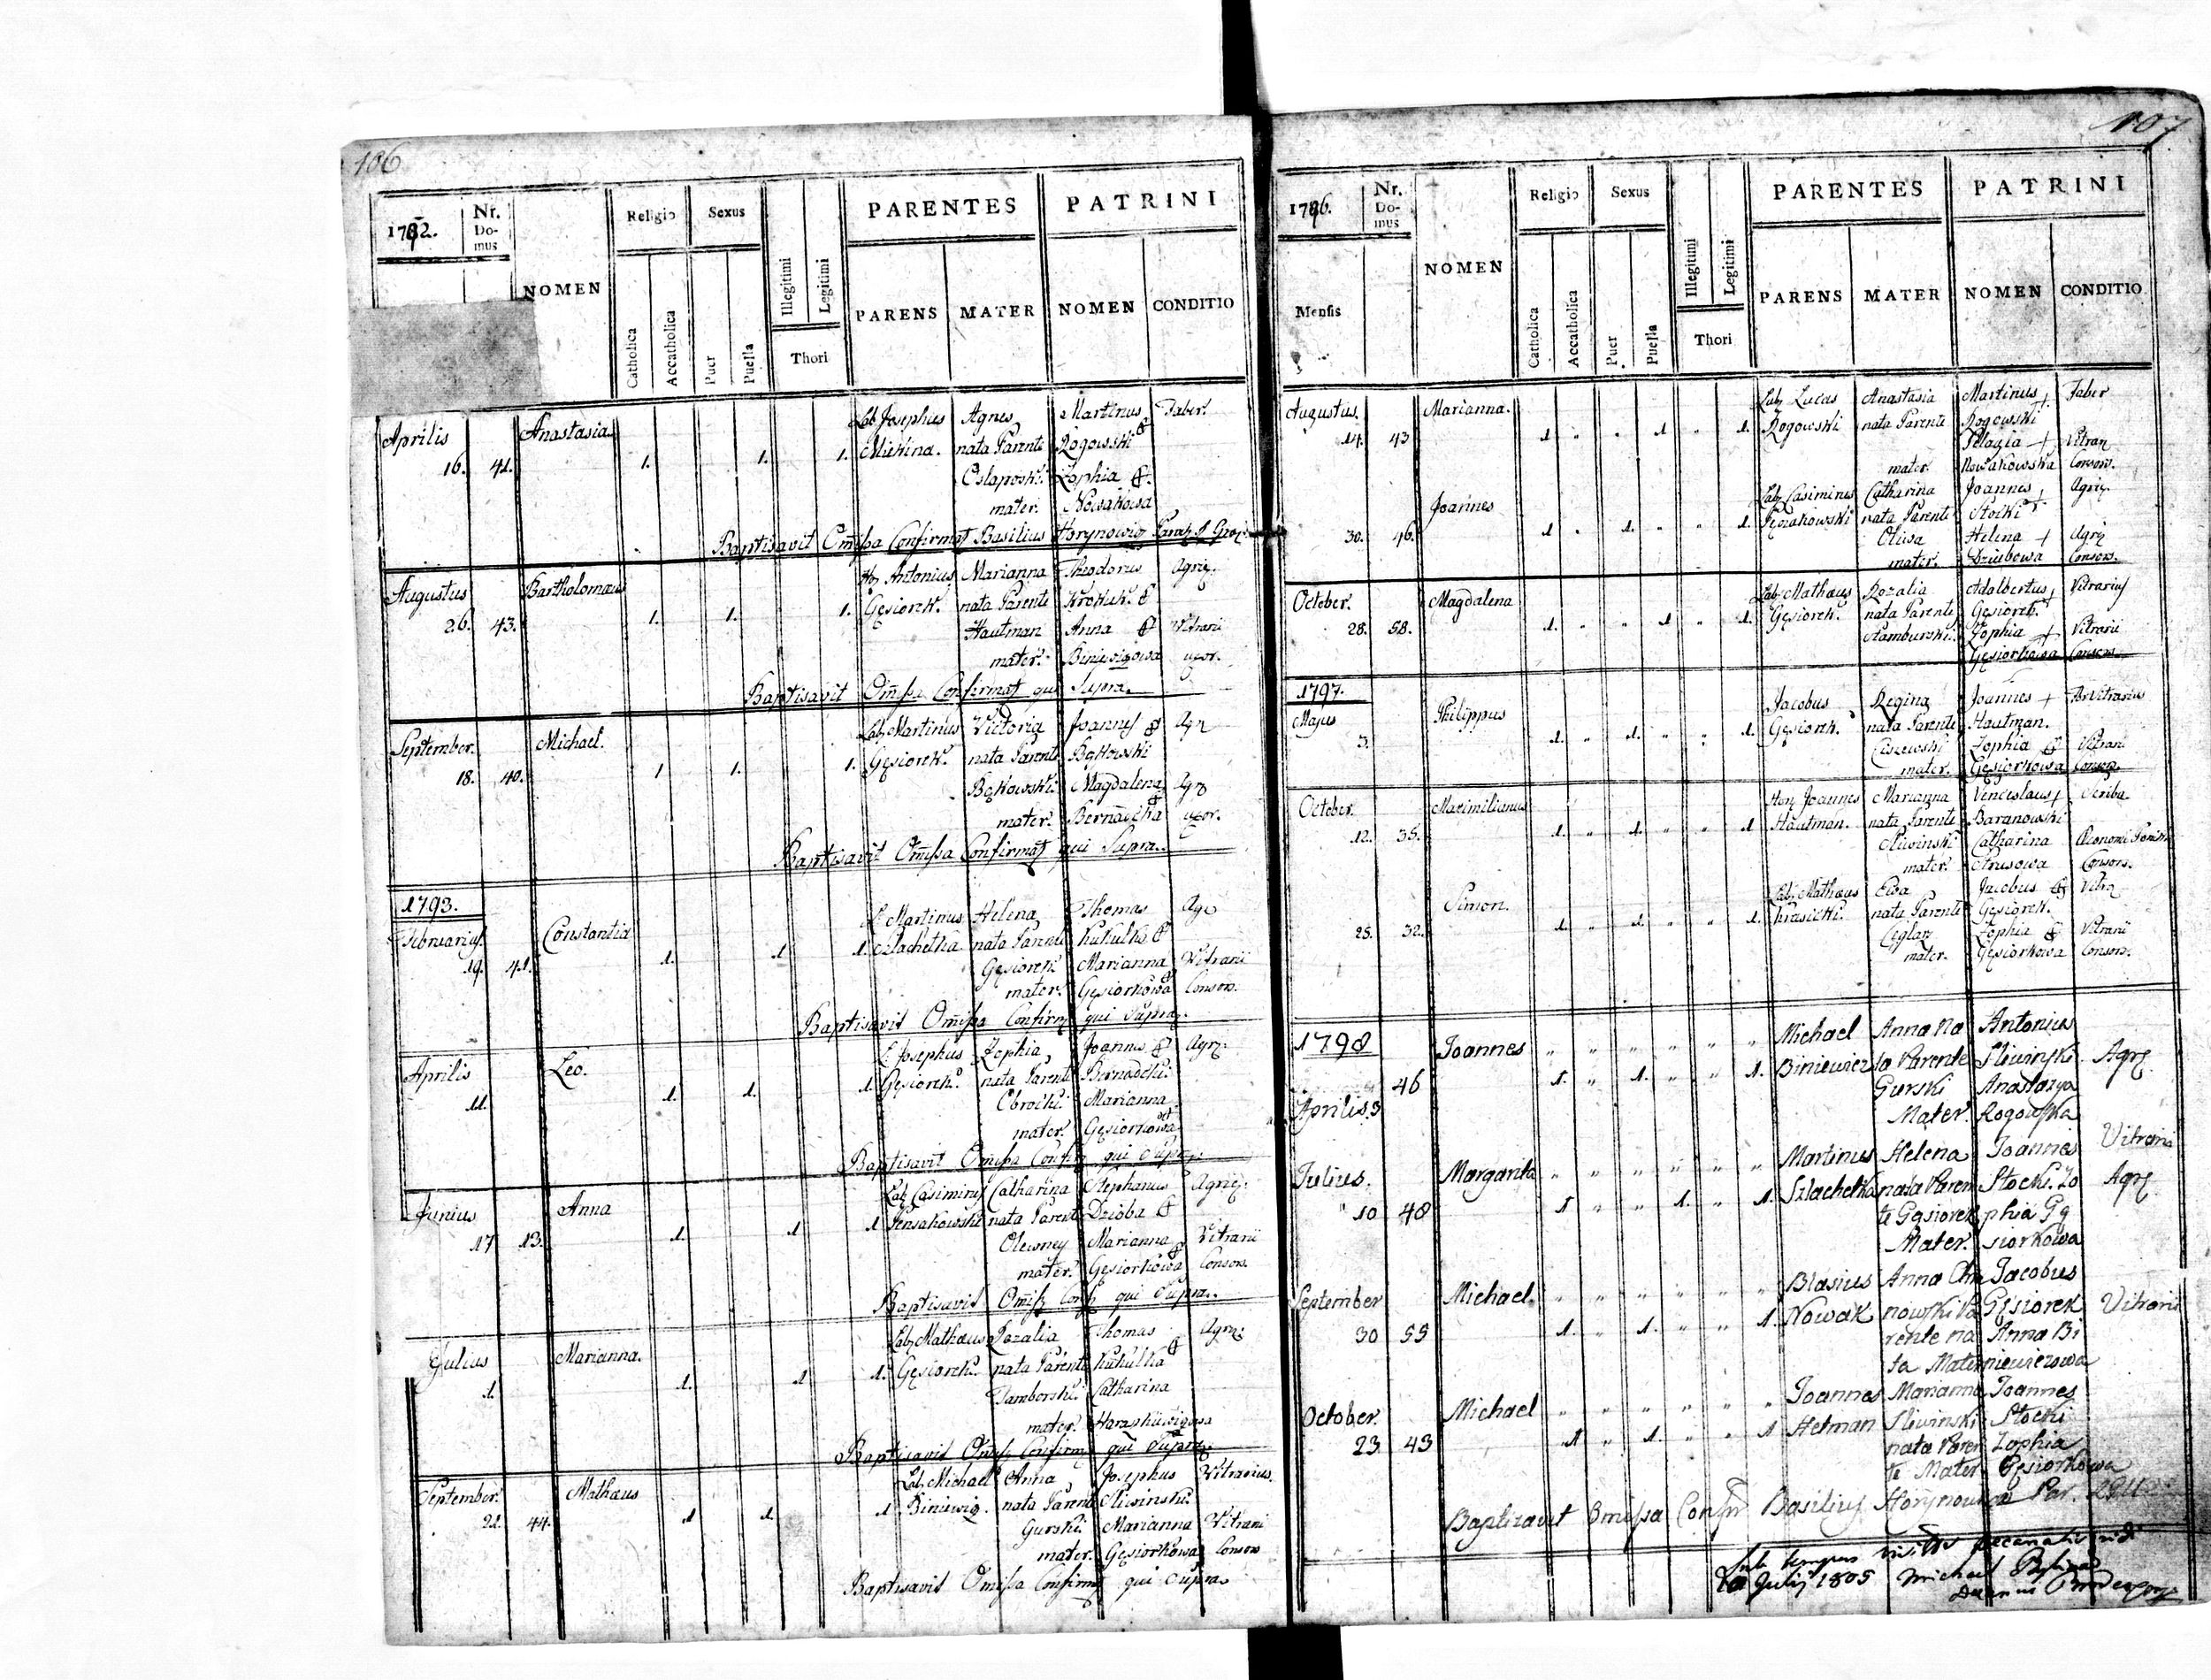 106
1792. Nr. Do- mus NOMEN Religio Sexus Illegitimi Legitimi PARENTES PATRINI
Catholica Accatholica Puer Puella Thori PARENS MATER NOMEN CONDITIO
Aprilis Anastasia Lab Josephus Agnes Martinus Faber.
16. 41. 1. 1. 1. Mickina. nata Parente Rogowski
Zophia
mater. Nowakowa
Baptisavit Omissa Confirmat Basilius Horynowicz
Augustus Bartholomaus Hon Antonius Marianna Theodorus Agric.
26. 43. 1. 1. 1. Gęsiorek. nata Parente Krokuk.
Hautman Anna Vitrarii
mater. Biniewigowa uxor.
Baptisavit Omissa Confirmat qui Supra.
September. Michael. Lab Martinus Victoria Joannes Agr
18. 40. 1 1. 1. Gęsiorek. nata Parente Bąkowski
Bąkowski. Magdalena Agr
mater. Bernacka uxor.
Baptisavit Omissa Confirmat qui Supra.
1793.
Februarius Constantia L Martinus Helena Thomas Agr
19. 41. 1. 1 1. Szlachetka nata Parente Kukulka
Gęsiorek Marianna Vitrarii
mater. Gęsiorkowa Consors.
Baptisavit Omissa Confirm qui Supra.
Aprilis Leo. L Josephus Zophia Joannes Agr.
11. 1. 1. 1. Gęsiorek. nata Parente Bernadcki.
Obrocki. Marianna
mater. Gęsiorkowa
Baptisavit Omissa Confir qui Supra.
Junius Anna Lab Casimirus Catharina Stephanus Agric.
17 13. 1. 1 1. Pensakowski nata Parente Dzioba
Marianna Vitrarii
mater. Gęsiorkowa Consors.
Baptisavit Omiss Conf qui Supra.
Julius Marianna. Lab Mathaus Rozalia Thomas Agr.
1. 1. 1 1. Gęsiorek. nata Parente Kukulka
Tamborski. Catharina
mater.
Baptisavit Omiss Confirm qui Supra.
September. Mathaus Lab. Michael Anna Josephus Vitrarius.
21. 44. 1 1. 1 Biniewig. nata Parente Sliwinski.
Gurski. Marianna Vitrarii
mater. Gęsiorkowa Consors
Baptisavit Omissa Confirmat qui Supra
107
1796. Nr. Do- mus NOMEN Religio Sexus Illegitimi Legitimi PARENTES PATRINI
Mensis Catholica Accatholica Puer Puella Thori PARENS MATER NOMEN CONDITIO
Augustus. Marianna. Lab Lucas Anastasia Martinus + Faber
14. 43 1 " " 1 " 1. Rogowski nata Parente Rogowski
Pelagia + Vitrar
mater. Nowakowska Consors.
Joannes Lab Casimirus Catharina Joannes + Agric.
30. 46. 1 " 1. " " 1. nata Parente Stocki
Oliwa Helena + Agric
mater. Dziubowa Consors.
October. Magdalena Lab Mathaus Rozalia Adalbertus + Vitrarius
28. 58. 1. " " 1 " 1. Gęsiorek. nata Parente Gęsiorek.
Stamburski. Zophia + Vitrarii
Gęsiorkowa Consors
1797. Jacobus Regina Joannes +
Majus Philippus Gęsiorek. nata Parente Hautman.
3. 1. " 1. " " 1. Ciszewski Zophia Vitrarii
mater. Gęsiorkowa Consors
October. Maximilianus Hon Joannes Marianna Venceslaus + Scriba
12. 35. 1. " 1. " " 1 Hautman. nata Parente Baranowski
Sliwinski Catharina
mater. Strusowa Consors.
Simon. Lab Mathaus Ewa Jacobus Vitra
25. 32. 1. " 1. " " 1. Krasicki. nata Parente Gęsiorek.
Ceglar Zophia Vitrarii
mater. Gęsiorkowa Consors.
1798 Joannes " " " " " " Michael Anna Na Antonius
46 1. " 1. " " 1. Biniewicz ta Parente Sliwinski Agr
Aprilis 3 Gurski Anastazya
Mater. Rogowska
Julius. Margarita " " " " " " Martinus Helena Joannes Vitrarii
10 48 1 " " 1. " 1. Szlachetka nata Paren Stocki. Zo Agr
te Gąsiorek phia Gą
Mater. siorkowa
September Michael. " " " " " " Blasius Anna Chr Jacobus
30 55 1. " 1. " " 1. Nowak nowski Pa Gęsiorek Vitrarii
rente na Anna Bi
ta Mater niewiczowa
October. Michael " " " " " " Joannes Marianna Joannes
23 43 1 " 1. " " 1 Hetman Sliwinski Stocki
nata Paren Zophia
te Mater. Gęsiorkowa
Baptizavit Omissa Confir Basilius Horynowicz Par.
10 Julij 1805 Michael